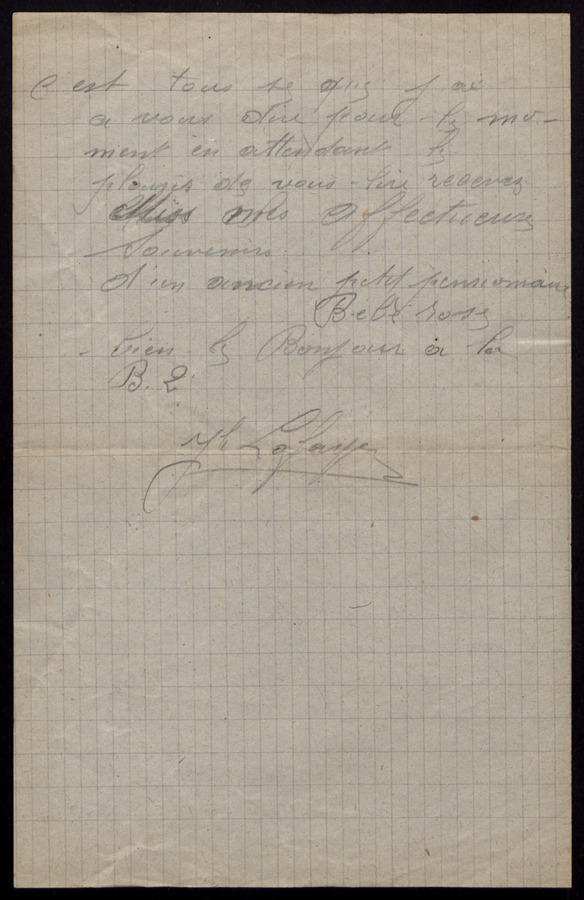 C'est tous se que j'ai
a vous dire pour le mo-
ment en attendant le
plaisir de vous lire recevez
Miss mes affectueux
Souvenirs
d'un ancien petit pensionnaire
Bébé rose
- bien le Bonjour a la
B. 2.